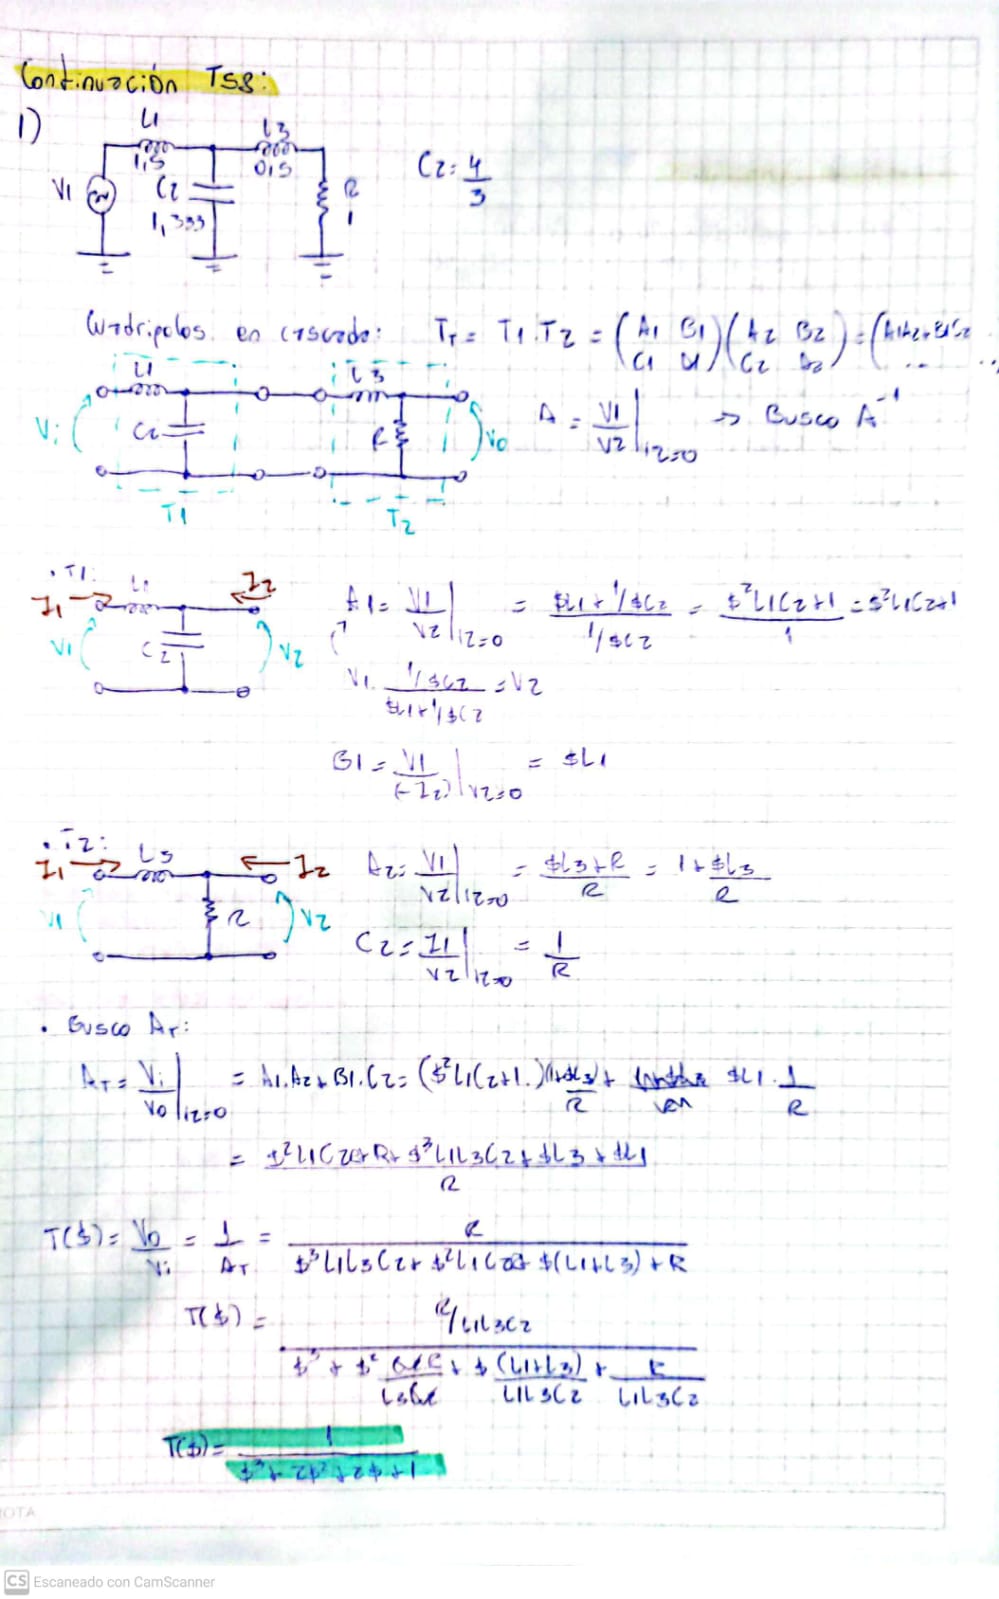 Continuación TS8:
1)
L1
1,5
L3
0,5
V1
C2
1,333
R
1
C2 = 4/3
Cuadripolos en cascada: T_T = T1 . T2 = (A1 B1 C1 D1) (A2 B2 C2 D2) = (A1A2+B1C2 ...
L1
L3
Vi
C2
R
Vo
T1
T2
A = V1/V2 |I2=0 → Busco A⁻¹
. T1:
I1
L1
I2
V1
C2
V2
A1 = V1/V2 |I2=0 = ($L1 + 1/$C2)/(1/$C2) = ($²L1C2+1)/1 = $²L1C2+1
V1 . (1/$C2)/($L1+1/$C2) = V2
B1 = V1/(-I2) |V2=0 = $L1
. T2:
I1
L3
I2
V1
R
V2
A2 = V1/V2 |I2=0 = ($L3+R)/R = 1+$L3/R
C2 = I1/V2 |I2=0 = 1/R
. Busco A_T:
A_T = Vi/Vo |I2=0 = A1.A2 + B1.C2 = ($²L1C2+1.)(1+$L3/R) + $L1 . 1/R
= ($²L1C2R + R + $³L1L3C2 + $L3 + $L1)/R
T($) = Vo/Vi = 1/A_T = R/($³L1L3C2 + $²L1C2R + $(L1+L3) + R)
T($) = (R/L1L3C2)/($³ + $² L1C2R/L3L1C2 + $ (L1+L3)/L1L3C2 + R/L1L3C2)
T($) = 1/($³ + 2$² + 2$ + 1)
OTA
CS Escaneado con CamScanner